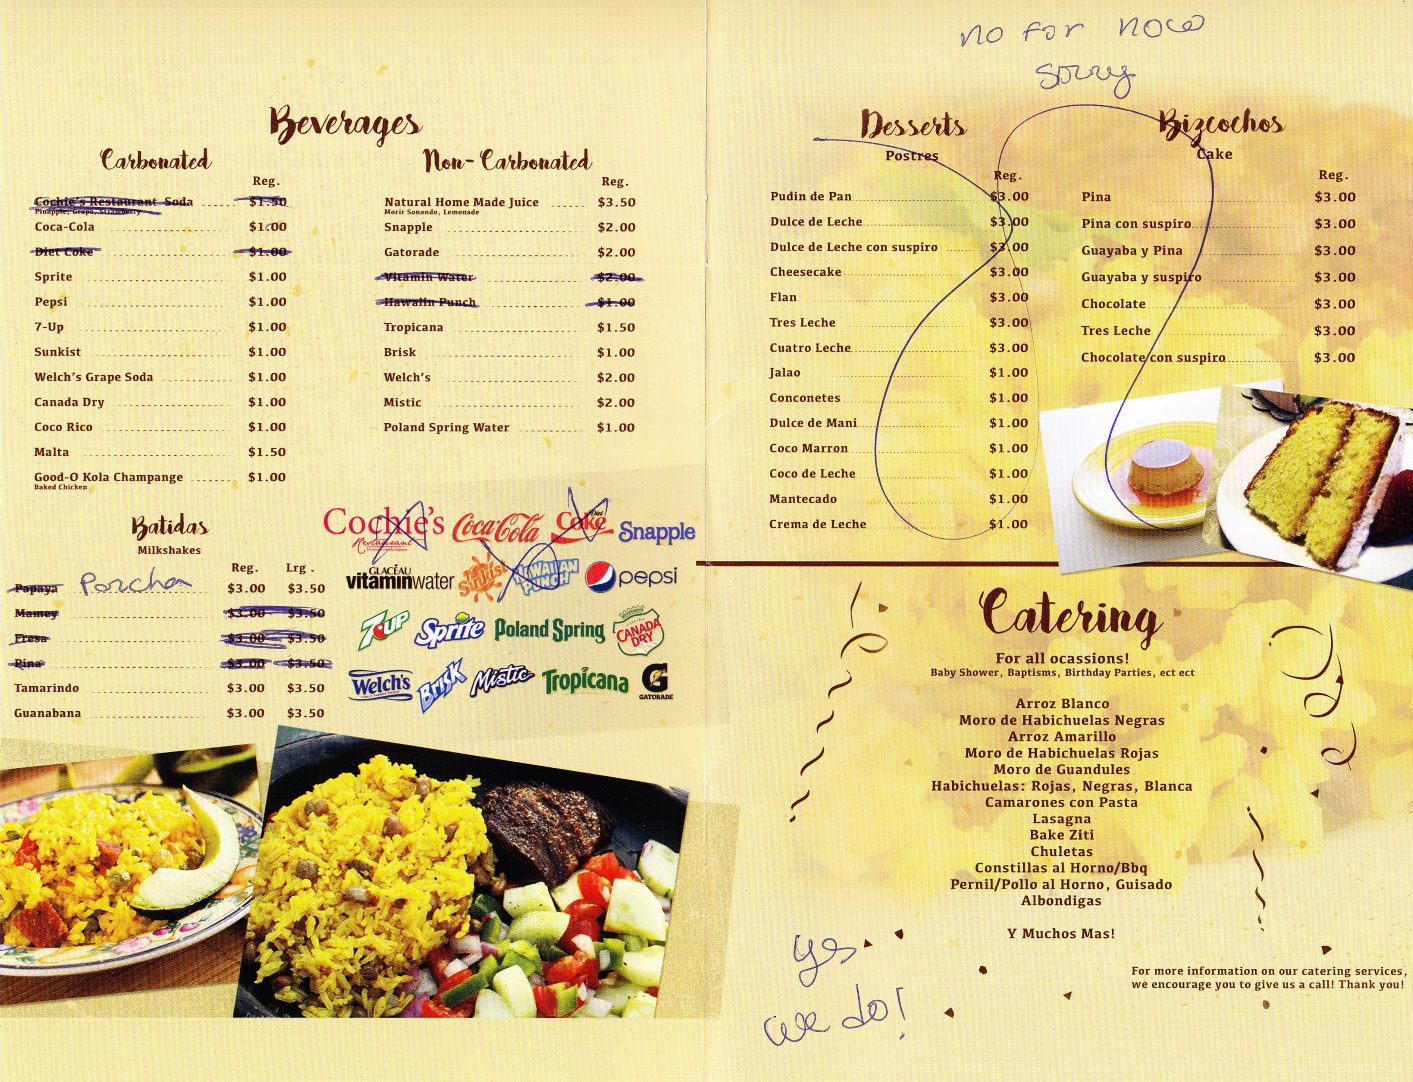 no for now
sorry
Beverages
Carbonated
Reg.
Cochie's Restaurant Soda $1.50
Pinapple, Grape, Strawberry
Coca-Cola $1.00
Diet Coke $1.00
Sprite $1.00
Pepsi $1.00
7-Up $1.00
Sunkist $1.00
Welch's Grape Soda $1.00
Canada Dry $1.00
Coco Rico $1.00
Malta $1.50
Good-O Kola Champange $1.00
Baked Chicken
Non-Carbonated
Reg.
Natural Home Made Juice $3.50
Morir Sonando, Lemonade
Snapple $2.00
Gatorade $2.00
Vitamin Water $2.00
Hawaiin Punch $1.00
Tropicana $1.50
Brisk $1.00
Welch's $2.00
Mistic $2.00
Poland Spring Water $1.00
Batidas
Milkshakes
Reg. Lrg.
Papaya Porcha $3.00 $3.50
Mamey $3.00 $3.50
Fresa $3.00 $3.50
Pina $3.00 $3.50
Tamarindo $3.00 $3.50
Guanabana $3.00 $3.50
Cochie's Restaurant
Coca-Cola
Diet Coke
Snapple
GLACÉAU vitaminwater
Sunkist
HAWAIIAN PUNCH
pepsi
7UP
Sprite
Poland Spring
CANADA DRY
Welch's
BRISK
Mistic
Tropicana
G GATORADE
Desserts
Postres
Reg.
Pudin de Pan $3.00
Dulce de Leche $3.00
Dulce de Leche con suspiro $3.00
Cheesecake $3.00
Flan $3.00
Tres Leche $3.00
Cuatro Leche $3.00
Jalao $1.00
Conconetes $1.00
Dulce de Mani $1.00
Coco Marron $1.00
Coco de Leche $1.00
Mantecado $1.00
Crema de Leche $1.00
Bizcochos
Cake
Reg.
Pina $3.00
Pina con suspiro $3.00
Guayaba y Pina $3.00
Guayaba y suspiro $3.00
Chocolate $3.00
Tres Leche $3.00
Chocolate con suspiro $3.00
Catering
For all ocassions!
Baby Shower, Baptisms, Birthday Parties, ect ect
Arroz Blanco
Moro de Habichuelas Negras
Arroz Amarillo
Moro de Habichuelas Rojas
Moro de Guandules
Habichuelas: Rojas, Negras, Blanca
Camarones con Pasta
Lasagna
Bake Ziti
Chuletas
Constillas al Horno/Bbq
Pernil/Pollo al Horno, Guisado
Albondigas
Y Muchos Mas!
yes
we do!
For more information on our catering services,
we encourage you to give us a call! Thank you!